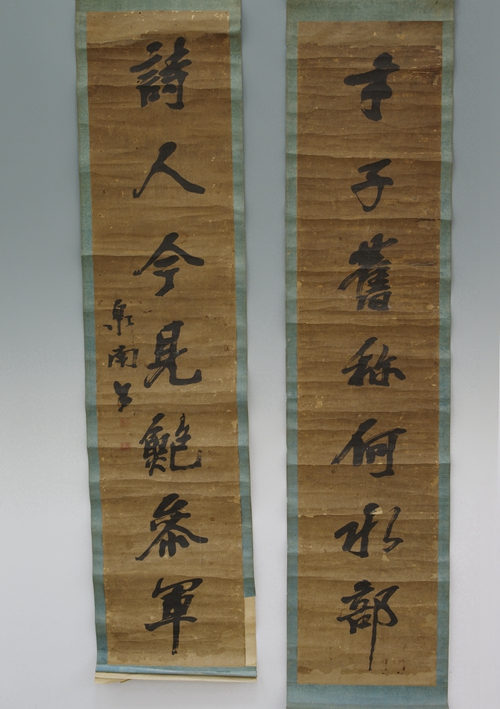 才子舊称何水部
詩人今見鮑參軍
泉南